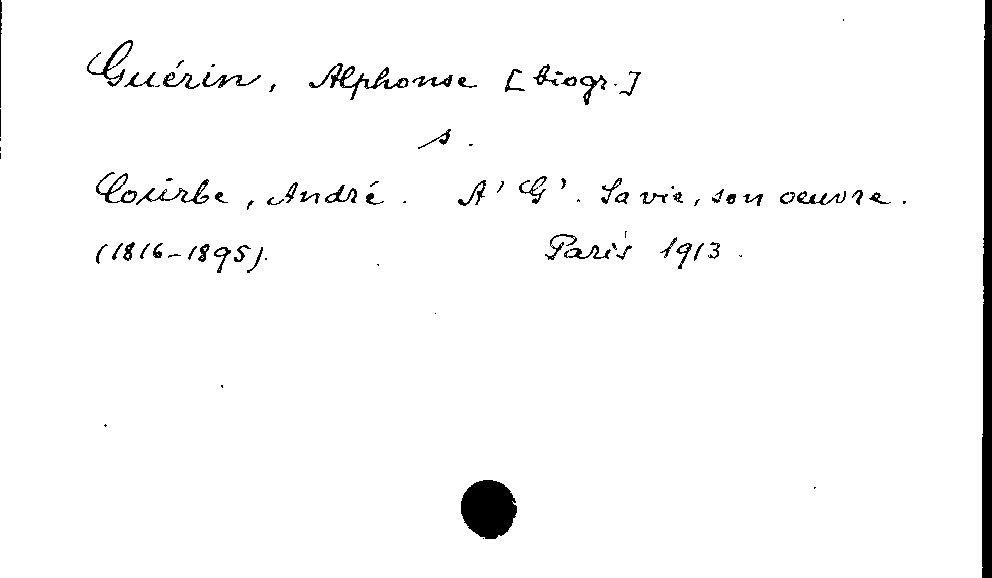 Guérin, Alphonse [biogr.]
s.
Courbe, André. A' G'. Sa vie, son oeuvre.
(1816-1895). Paris 1913.